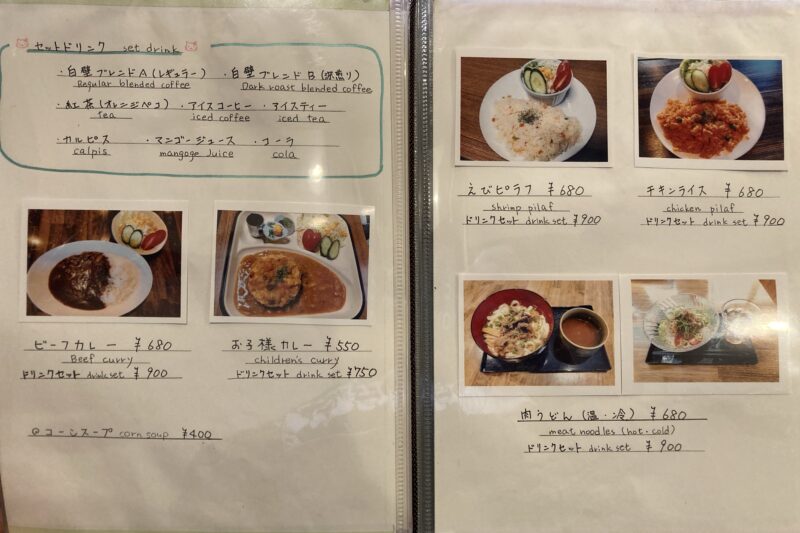 セットドリンク set drink
・白壁ブレンドA(レギュラー) ・白壁ブレンドB(深煎り)
Regular blended coffee Dark roast blended coffee
・紅茶(オレンジペコ) ・アイスコーヒー ・アイスティー
tea iced coffee iced tea
・カルピス ・マンゴージュース ・コーラ
calpis mangoge Juice cola
ビーフカレー ¥680
Beef curry
ドリンクセット drink set ¥900
お子様カレー ¥550
children's curry
ドリンクセット drink set ¥750
◎コーンスープ corn soup ¥400
えびピラフ ¥680
shrimp pilaf
ドリンクセット drink set ¥900
チキンライス ¥680
chicken pilaf
ドリンクセット drink set ¥900
肉うどん(温・冷) ¥680
meat noodles (hot・cold)
ドリンクセット drink set ¥900